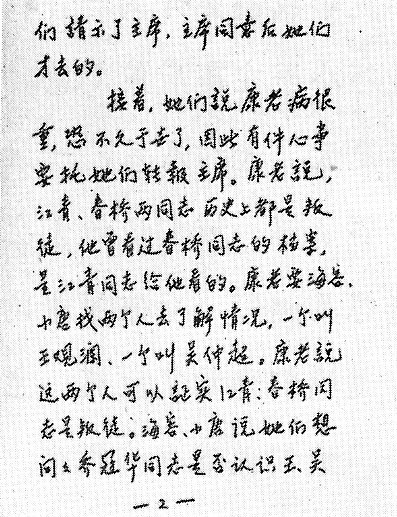 们請示了主席，主席同意后她们
才去的。
接着，她们說康老病很
重，恐不久于世了，因此有件心事
要托她们转報主席。康老說，
江青、春桥两同志历史上都是叛
徒，他曾看过春桥同志的档案，
是江青同志给他看的。康老要海容、
小唐找两个人去了解情况，一个叫
王观澜、一个叫吴仲超。康老說
这两个人可以証实江青、春桥同
志是叛徒。海容、小唐说她们想
问々乔冠华同志是否认识王、吴
— 2 —